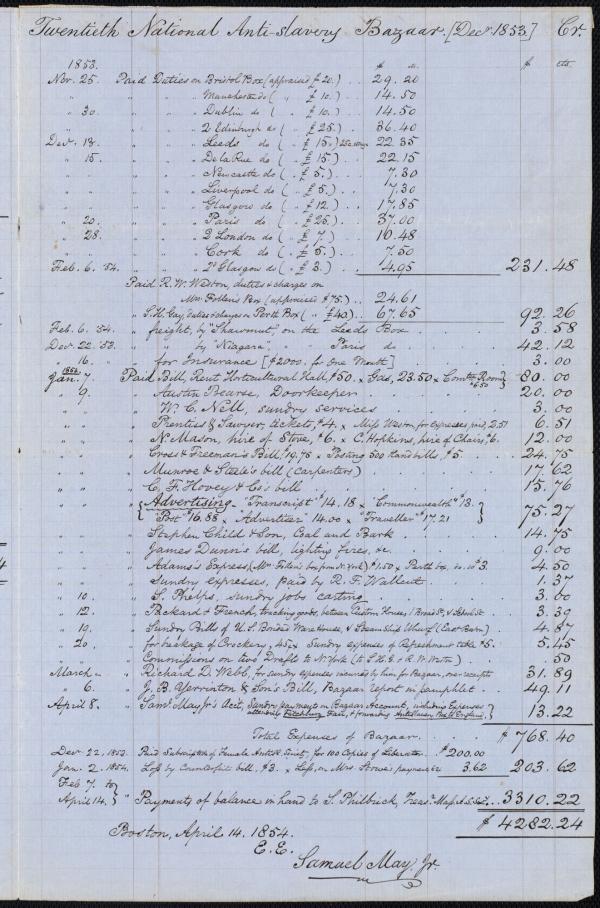 Twentieth National Anti-slavery Bazaar. [Decr. 1853.] Cr.
1853. $ cts. $ cts
Nov. 25. Paid Duties on Bristol Box (appraised £20.) . . 29.20
" " " " Manchester do ( " £10.) . . 14.50
" 30. " " " Dublin do ( " £10.) . . 14.50
" " " " 2 Edinburgh do ( " £25.) . . 36.40
Decr. 13. " " " Leeds do ( " £15.) 22.35
" 15. " " " De la Rue do ( " £15.) . . 22.15
" " " " Newcastle do ( " £5.) . . 7.30
" " " " Liverpool do ( " £5.) . . 7.30
" " " " Glasgow do ( " £12.) . . 17.85
" 20. " " " Paris do ( " £25.) . . 37.00
" 28. " " " 2 London do ( " £7.) . . 10.48
" " " " Cork do ( " £5.) . . 7.50
Feb. 6. '54. " " " 2d Glasgow do ( " £3.) . . 4.95 231.48
Paid R. W. Weston, duties & charges on
Mrs. Follen's Box (appraised $75.) . . 24.61
" S. H. Gay, duties & charges on Perth Box ( " £40.) . . 67.65 92.26
Feb. 6. '54. " freight, by "Shawmut", on the Leeds Box . . 3.58
Decr. 22. '53. " " by "Niagara", " " Paris do . . 42.12
" 16. " for Insurance [$2000. for One Month] 3.00
1854 Jan. 7. Paid Bill, Rent Horticultural Hall, $50. × Gas, 23.50 × Comtee. Room $6.50 } 80.00
" 9. " Austin Bearse, Doorkeeper . . 20.00
" " " W. C. Nell, sundry services . . 3.00
" " " Prentiss & Sawyer, tickets, $4. × Miss Weston for expenses paid, 2.51 6.51
" " " N. Mason, hire of Stove, $6. × C. Hopkins, hire of Chairs, $6. 12.00
" " " Cross & Freeman's Bill, $19.75 × Posting 500 Handbills, $5. 24.75
" " " Munroe & Steele's bill (carpenters) . . 17.62
" " " C. F. Hovey & Co's bill . . 15.76
" " " { Advertising – "Transcript" $14.18 × "Commonwealth" $13.
"Post" $16.88 × "Advertiser" 14.00 × "Traveller" $17.21 } 75.27
" " " Stephen Child & Son, Coal and Bark . . 14.75
" " " James Dunn's bill, lighting fires, &c. . . 9.00
" " " Adams's Express (Mrs. Follen's box from N. York) $1.50 × Perth box, do. do $3. 4.50
" " " Sundry expenses, paid by R. F. Wallcut . . 1.37
" 10. " S. Phelps, sundry jobs carting . . 3.00
" 12. " Packard & French, trucking goods, between Custom House, 1 Broad St., & School St. 3.39
" 19. " Sundry Bills of U. S. Bonded Warehouse, & Steam Ship Wharf (East Boston) 4.87
" 20. " for breakage of Crockery, 45c × Sundry expenses of Refreshment table $5. 5.45
" " " Commissions on two Drafts to N. York (to S. H. G. & R. W. Weston) . .50
March " Richard D. Webb, for sundry expenses incurred by him for Bazaar, over receipts 31.89
" 6. " J. B. Yerrinton & Son's Bill, Bazaar report in pamphlet . 49.11
April 8. " Saml. May Jr's Acct, Sundry payments on Bazaar Account, including Expenses
attending Fitchburg Fair, & forwarding } 13.22
Total Expenses of Bazaar . . . $768.40
Decr. 22. 1853. Paid Subscription of Female Anti S. Society, for 100 Copies of Liberator . $200.00
Jan. 2. 1854. Loss by Counterfeit bill, $3. × Loss, on Mrs. Stowe's payment 62 3.62 203.62
Feb. 7. to
April 14. } " Payments of balance in hand to S. Philbrick, Treasr. 3310.22
$4282.24
Boston, April 14. 1854.
E. E.
Samuel May, Jr.